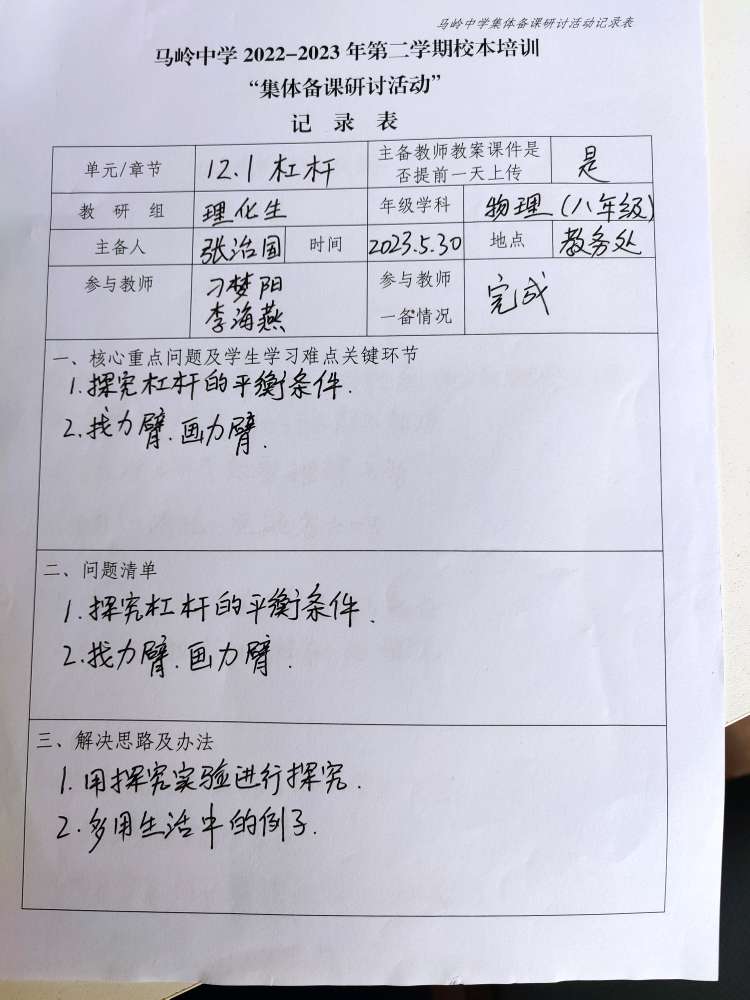 马岭中学集体备课研讨活动记录表
马岭中学 2022-2023 年第二学期校本培训
“集体备课研讨活动”
记 录 表
单元/章节 12.1 杠杆 主备教师教案课件是否提前一天上传 是
教 研 组 理化生 年级学科 物理(八年级)
主备人 张治国 时间 2023.5.30 地点 教务处
参与教师 刁梦阳 李海燕 参与教师一备情况 完成
一、核心重点问题及学生学习难点关键环节
1.探究杠杆的平衡条件.
2.找力臂.画力臂.
二、问题清单
1.探究杠杆的平衡条件.
2.找力臂.画力臂.
三、解决思路及办法
1.用探究实验进行探究.
2.多用生活中的例子.